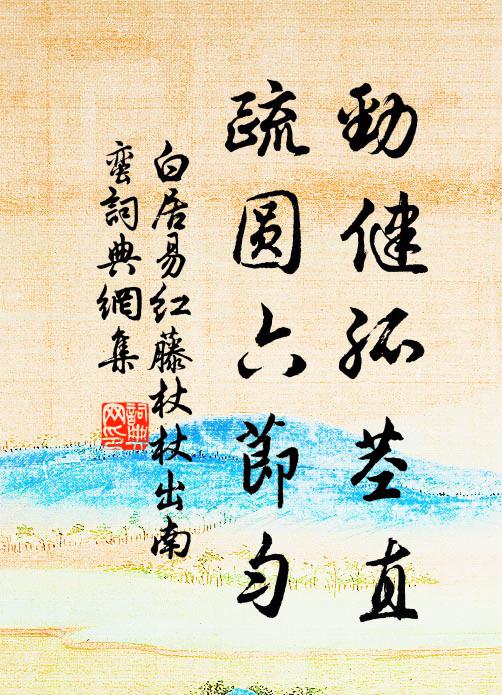 勁健孤莖直
疏圆六節勻
白居易红藤杖杖出南
蛮詞典網集
詞典网印